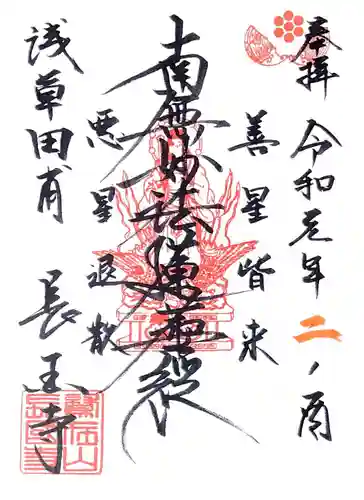 奉拝
令和元年二ノ酉
善星皆来
南無妙法蓮華経
悪星退散
浅草田甫
長国寺